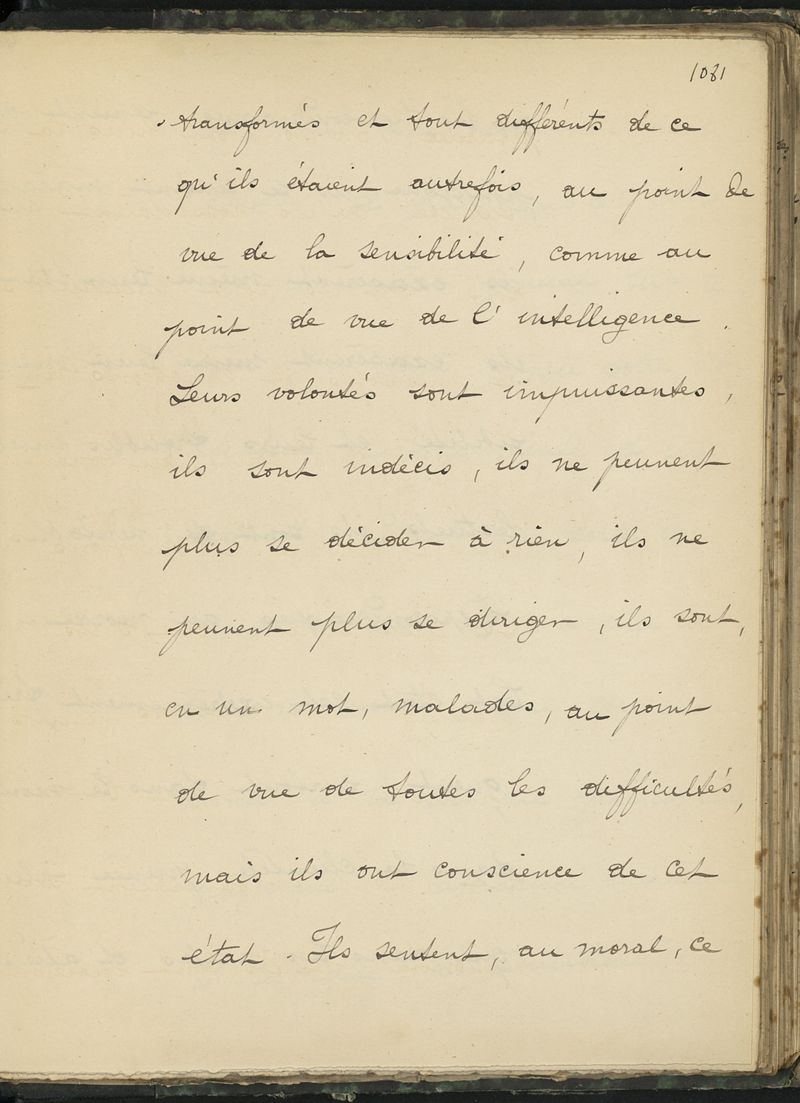 1081
transformés et tout différents de ce
qu'ils étaient autrefois, au point de
vue de la sensibilité, comme au
point de vue de l'intelligence.
Leurs volontés sont impuissantes,
ils sont indécis, ils ne peuvent
plus se décider à rien, ils ne
peuvent plus se diriger, ils sont,
en un mot, malades, au point
de vue de toutes les difficultés,
mais ils ont conscience de cet
état. Ils sentent, au moral, ce